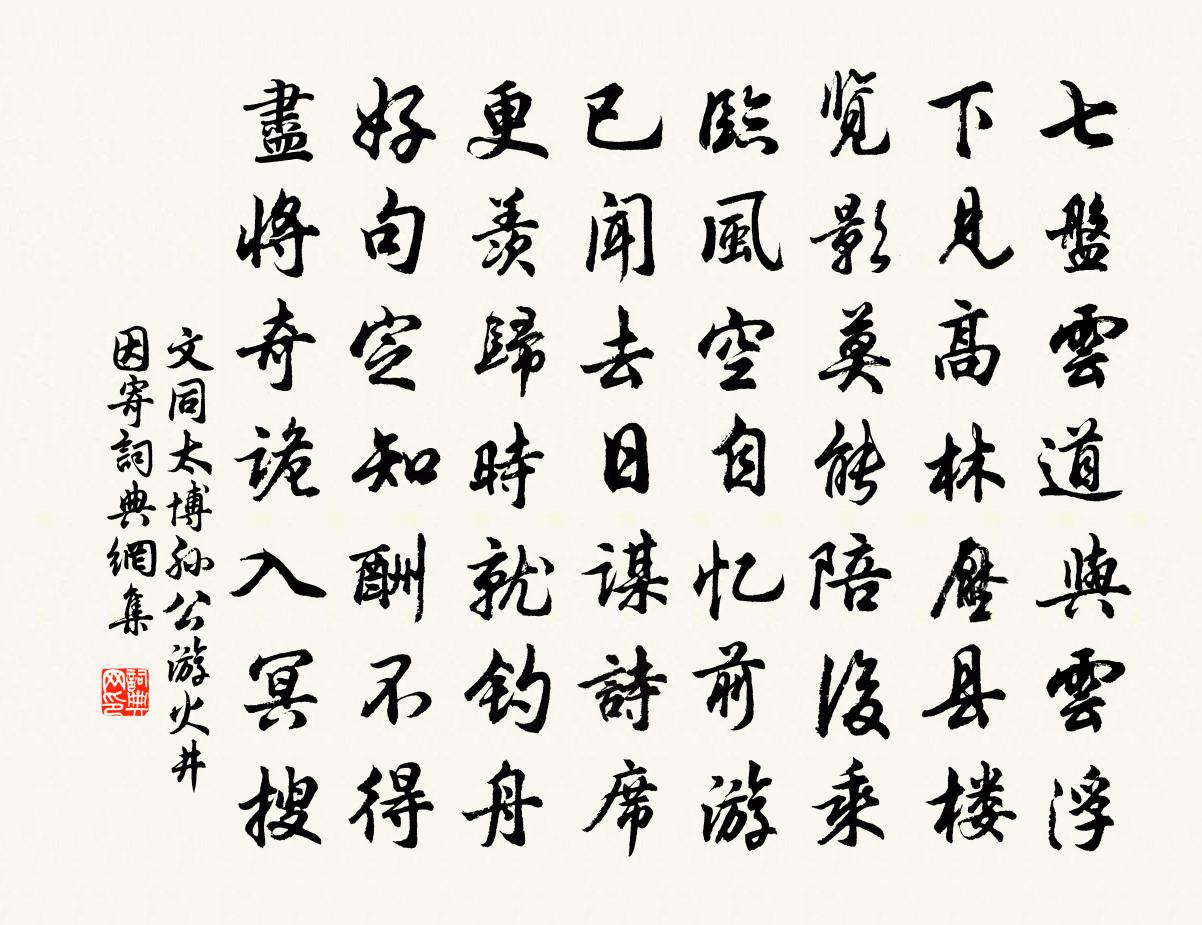 七盤雲道與雲浮
下見高林壓县楼
覧影莫能陪後乘
臨風空自忆前游
已聞去日谋詩席
更羨歸時就钓舟
好句定知酬不得
盡将奇诡入冥搜
文同太博孙公游火井
因寄詞典網集
詞典网印